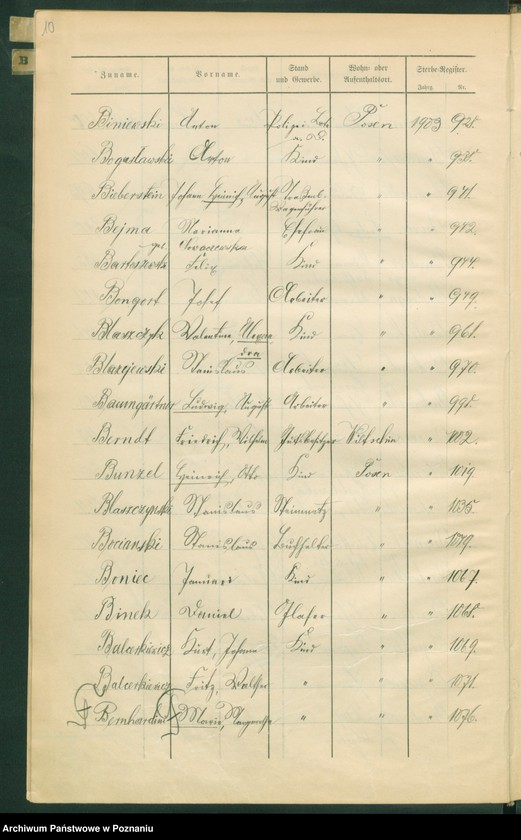 10
B
Zuname. Vorname. Stand und Gewerbe. Wohn- oder Aufenthaltsort. Sterbe-Register.
Jahrg. Nr.
Biniewski Anton Polizei Posen 1903 925.
Bogusławski Anton Kind " " 938.
Bieberstein Johann Heinrich, August Straßenb.- " " 941.
wagenführer
Bejma Marianna Ehefrau " " 942.
geb. Nowaczewska
Bartoszewski Felix Kind " " 944.
Bongert Josef Arbeiter " " 949.
Błaszczyk Valentine, Alexan- Kind " " 961.
dra
Błazejewski Stanislaus Arbeiter " " 970.
Baumgärtner Ludwig, August Arbeiter " " 995.
Berndt Friedrich, Wilhelm " 1002.
Bunzel Heinrich, Otto Kind Posen " 1019.
Blaszczynski Stanislaus Steinmetz " " 1035.
Bocianski Stanislaus Buchhalter " " 1059.
Boniec Januari Kind " " 1067.
Binek Daniel Glaser " " 1068.
Balcerkiewicz Kurt, Johann Kind " " 1069.
Balcerkiewicz Fritz, Walther " " " 1071.
Bernhardin Marie, Margarethe " " " 1076.
Archiwum Państwowe w Poznaniu